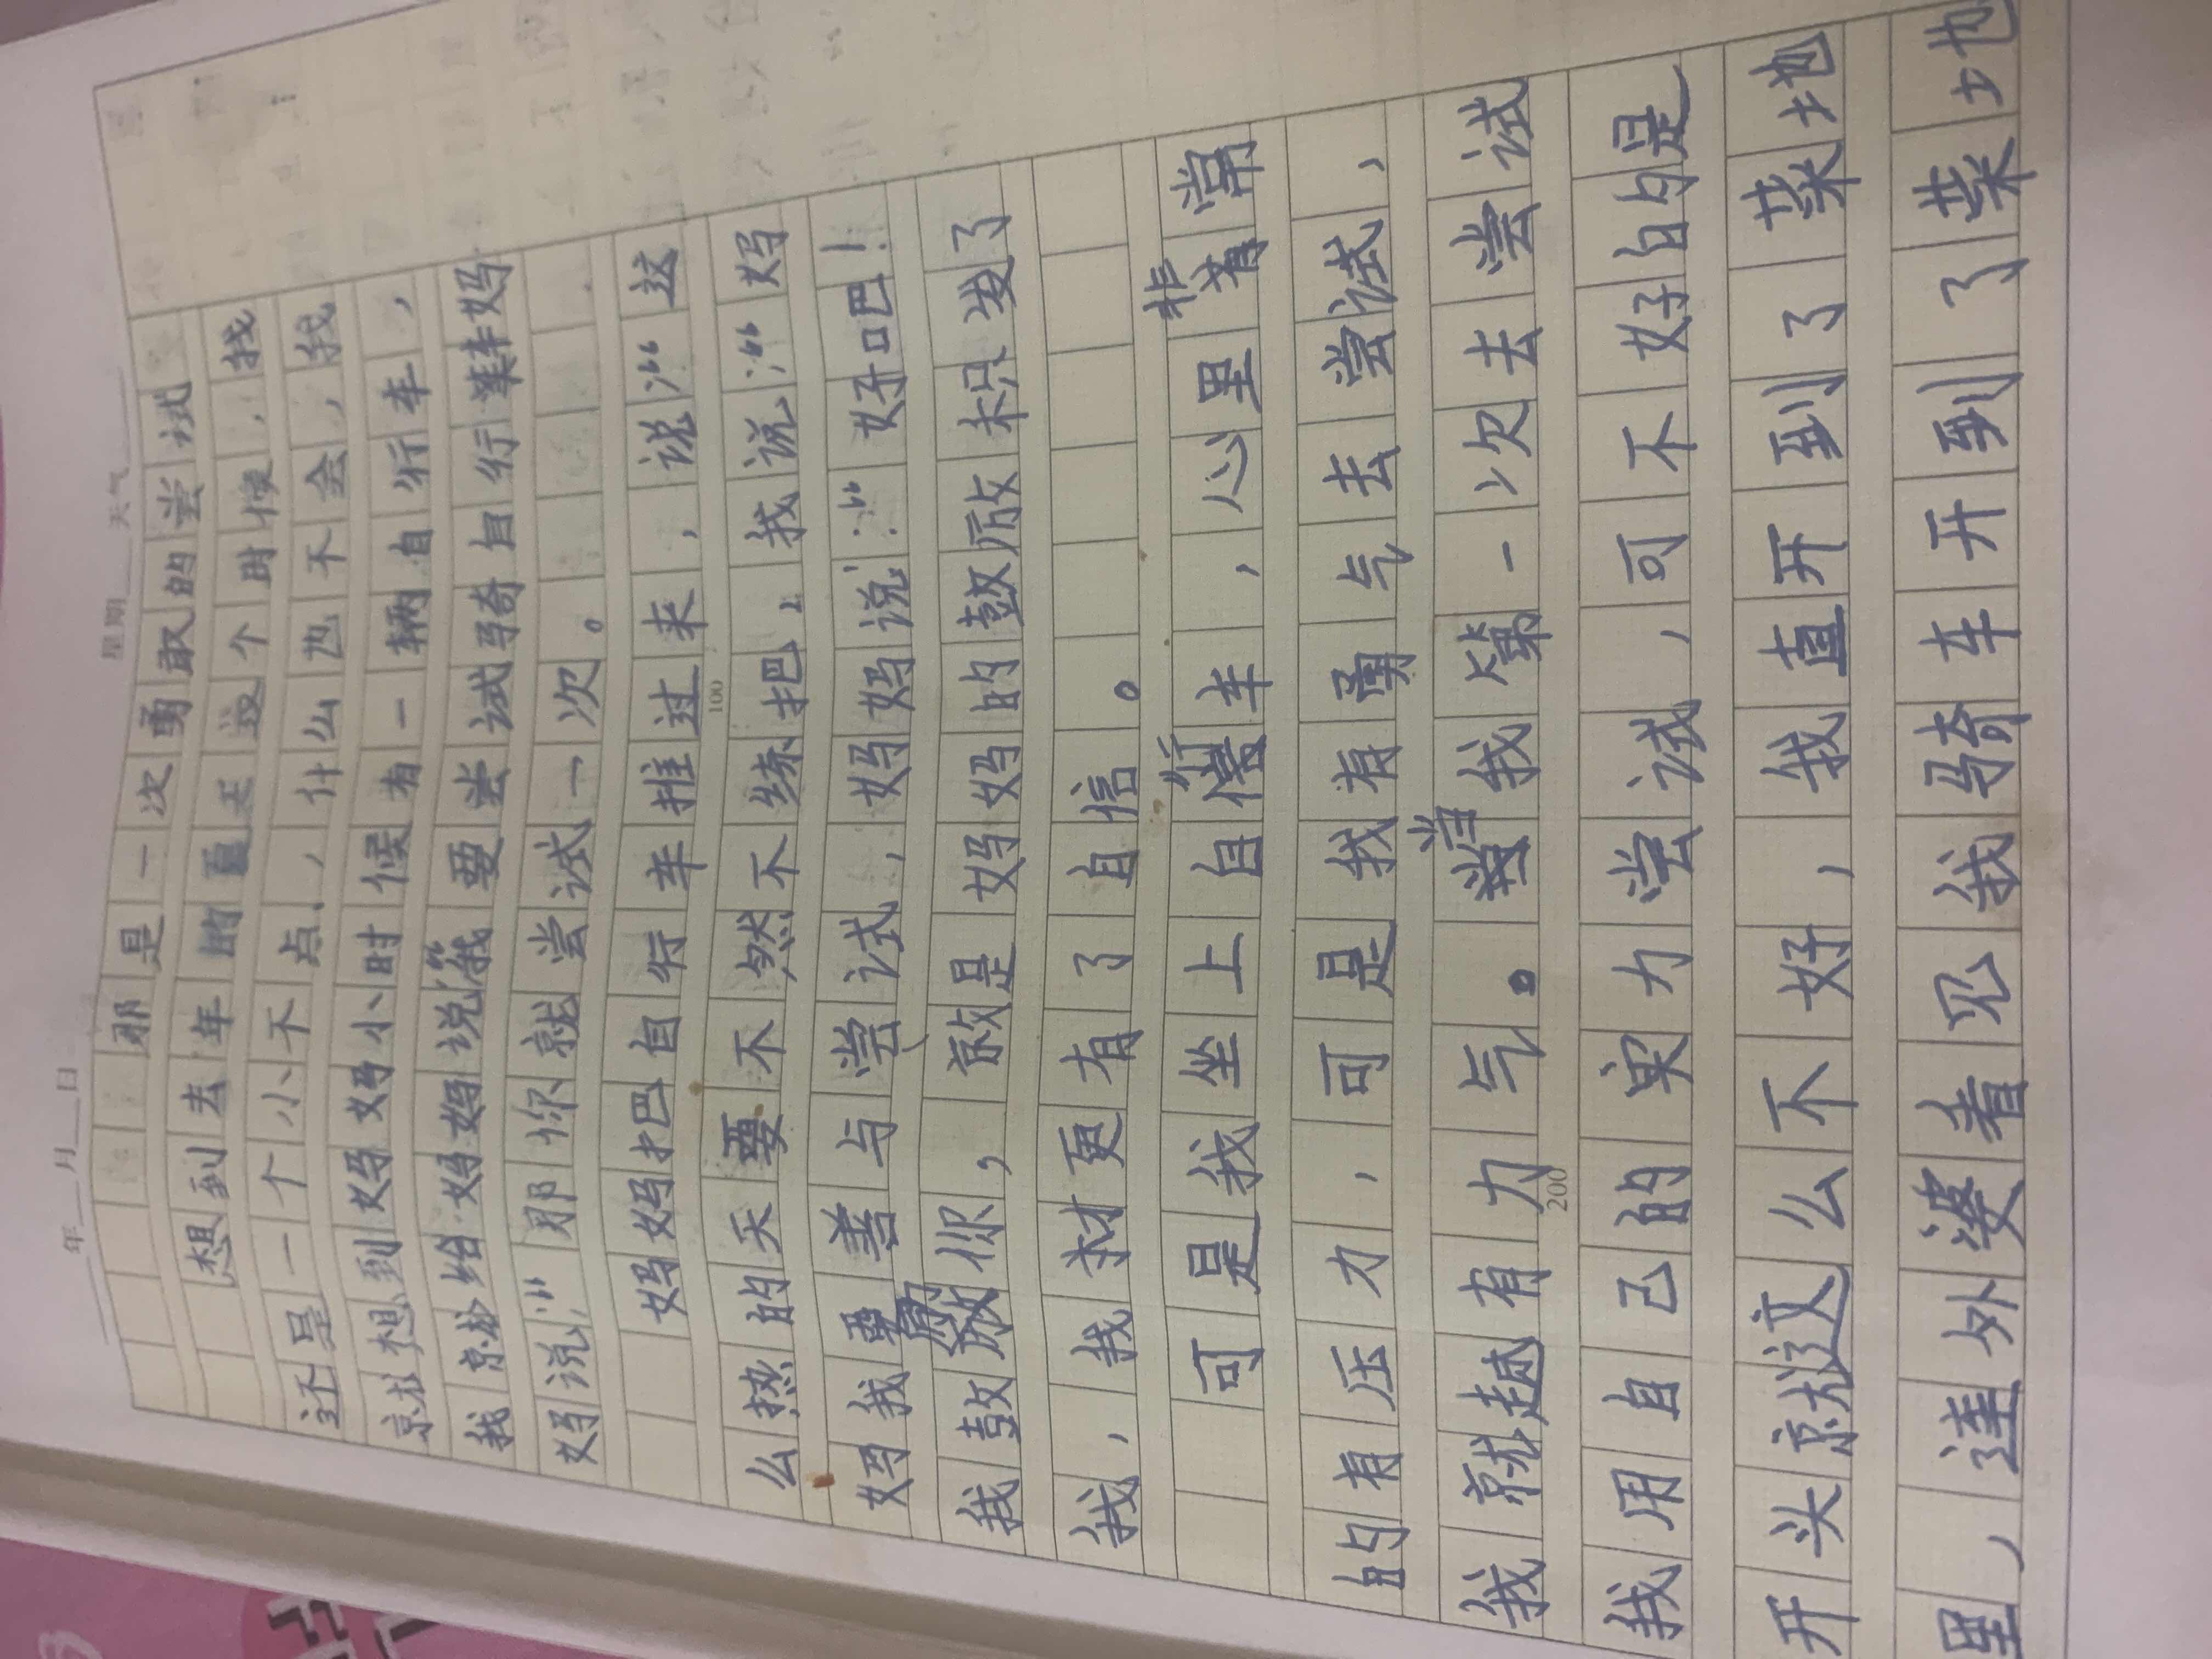 年 月 日 星期 天气
那是一次勇敢的尝试
想到去年的夏天这个时候，我
还是一个小不点，什么也不会，我
就想到妈妈小时候有一辆自行车，
我就给妈妈说“我要尝试骑自行车妈
妈说：“那你就尝试一次。
妈妈把自行车推过来，说：“这
么热的天要不然不练把，我说：“妈
妈我要善与尝试，妈妈说：“好吧！
我鼓励你，就是妈妈的鼓厉积发了
我，我才更有了自信。
100
可是我坐上自行车，心里非常
的有压力，可是我有勇气去尝试，
我就越有力气。当我第一次去尝试
200
我用自己的实力尝试，可不好的是
开头就这么不好，我直开到了菜地
里，连外婆看见我骑车开到了菜地